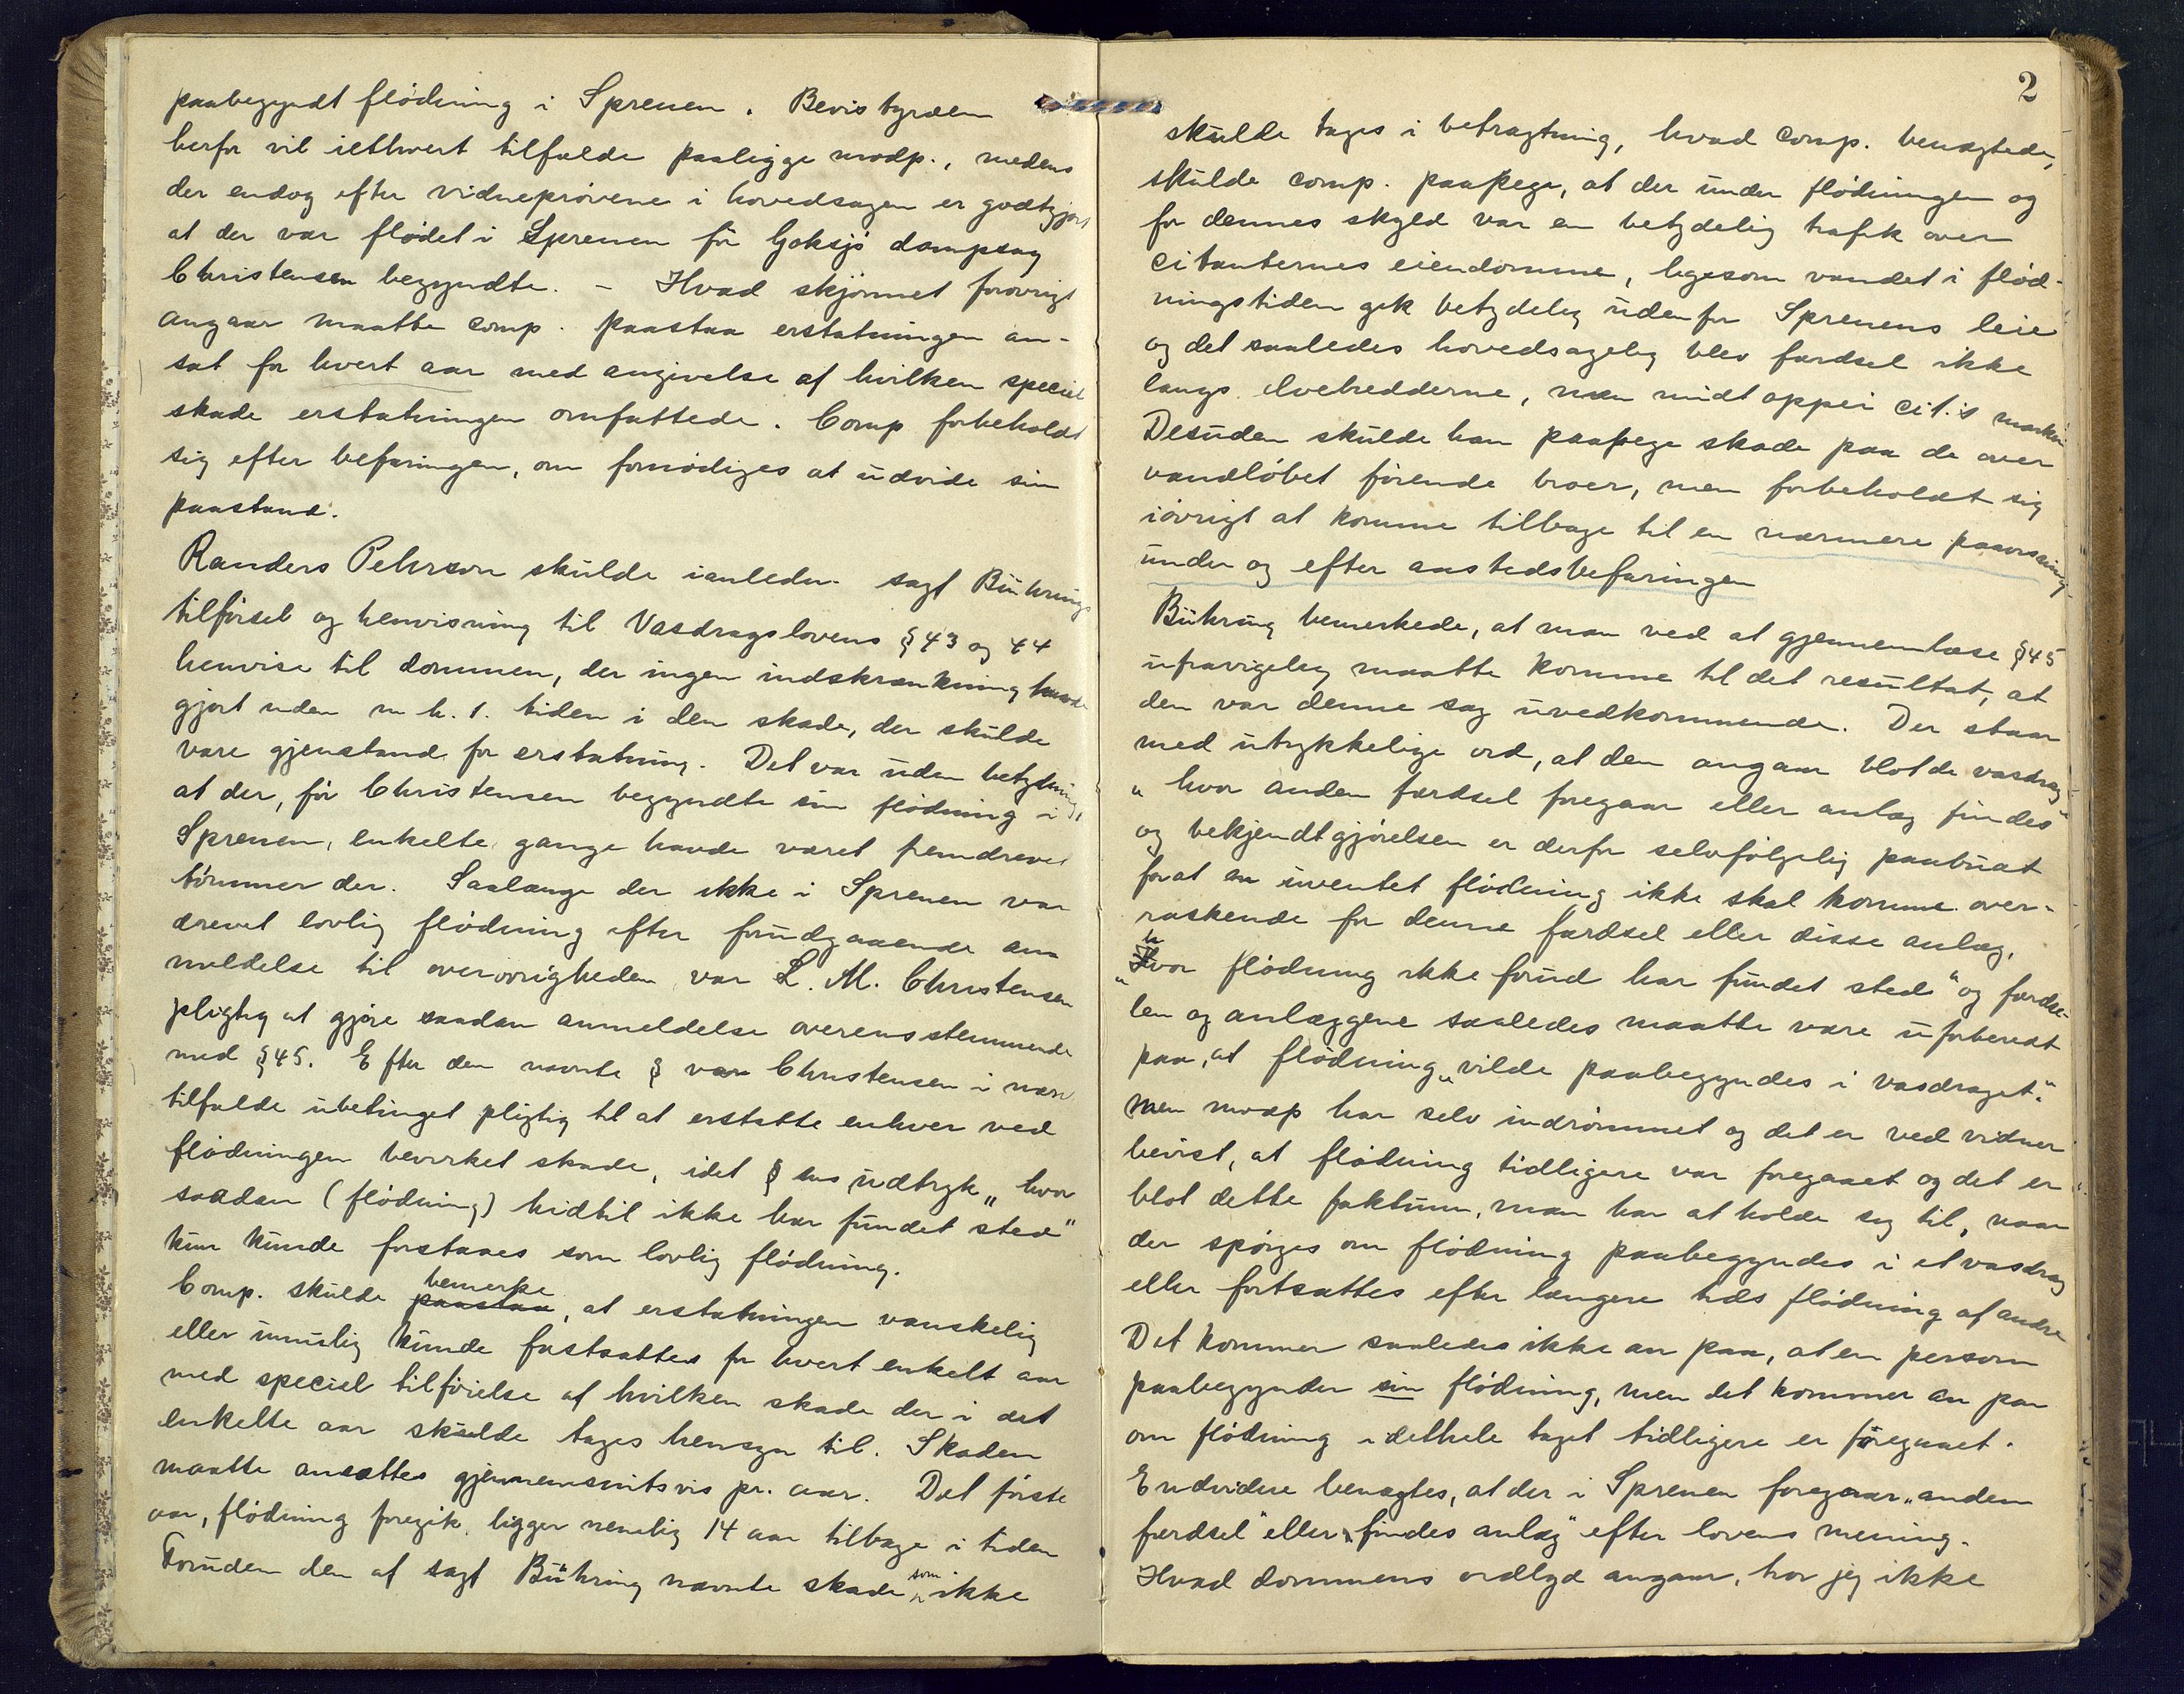 paabegyndt flödning i Sprenen. Bevisbyrden
herfor vil iethvert tilfælde paaligge modp., medens
der endog efter vidneprövene i hovedsagen er godtgjort
at der var flödet i Sprenen för Goksjö dampsag
Christensen begyndte. – Hvad skjönnet forövrigt
angaar maatte comp. paastaa erstatningen an-
sat for hvert aar med angivelse af hvilken speciel
skade erstatningen omfattede. Comp forbeholdt
sig efter befaringen, om fornödiges at udvide sin
paastand.
Randers Pehrson skulde ianledn. sagf Bührings
tilförsel og henvisning til Vasdragslovens § 43 og 44
henvise til dommen, der ingen indskrænkning havde
gjort uden m. h. t. tiden i den skade, der skulde
være gjenstand for erstatning. Det var uden betydning,
at der, för Christensen begyndte sin flödning i
Sprenen, enkelte gange havde været fremdrevet
tömmer der. Saalænge der ikke i Sprenen var
drevet lovlig flödning efter forudgaaende an-
meldelse til överövrigheden var L. M. Christensen
pligtig at gjöre saadan anmeldelse overensstemmende
med § 45. Efter den nævnte § var Christensen i nærv
tilfælde ubetinget pligtig til at erstatte enhver ved
flödningen bevirket skade, idet § ens udtryk „hvor
saadan (flödning) hidtil ikke har fundet sted"
kun kunde forstaaes som lovlig flödning.
bemerke
Comp. skulde paastaa, at erstatningen vanskelig
eller umulig kunde fastsættes for hvert enkelt aar
med speciel tilföielse af hvilken skade der i det
enkelte aar skulde tages hensyn til. Skaden
maatte ansættes gjennemsnitsvis pr. aar. Det förste
aar, flödning foregik, ligger nemlig 14 aar tilbage i tiden
Foruden den af sagf Bühring nævnte skade som ikke
2
skulde tages i betragtning, hvad comp. benægtede,
skulde comp. paapege, at der under flödningen og
for dennes skyld var en betydelig trafik over
citanternes eiendomme, ligesom vandet i flöd-
ningstiden gik betydelig udenfor Sprenens leie
og det saaledes hovedsagelig blev færdsel ikke
langs elvebredderne, men midt oppe i cit.'s marker
Desuden skulde han paapege skade paa de over
vandlöbet förende broer, men forbeholdt sig
iövrigt at komme tilbage til en nærmere paavisning
under og efter aastedsbefaringen
Bühring bemerkede, at man ved at gjennemlæse § 45
ufravigelig maatte komme til det resultat, at
den var denne sag uvedkommende. Der staar
med utrykkelige ord, at den angaar blot de vasdrag
„hvor anden færdsel foregaar eller anlæg findes"
og bekjendtgjörelsen er derfor selvfölgelig paabudt
forat en uventet flödning ikke skal komme over-
raskende for denne færdsel eller disse anlæg,
„hvor flödning ikke forud har fundet sted" og færdse-
len og anlæggene saaledes maatte være uforberedt
paa, at flödning „vilde paabegyndes i vasdraget."
Men modp har selv indrömmet og det er ved vidner
bevist, at flödning tidligere var foregaaet og det er
blot dette faktum, man har at holde sig til, naar
der spörges om flödning paabegyndes i et vasdrag
eller fortsættes efter længere tids flödning af andre
Det kommer saaledes ikke an paa, at en person
paabegynder sin flödning, men det kommer an paa
om flödning i dethele taget tidligere er foregaaet.
Endvidere benægtes, at der i Sprenen foregaar „anden
færdsel" eller „findes anlæg" efter lovens mening.
Hvad dommens ordlyd angaar, har jeg ikke